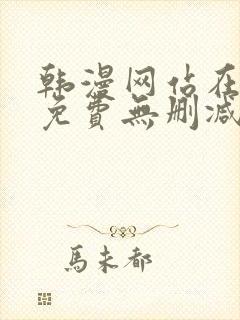 韩漫网站在
免費無删减
馬未都